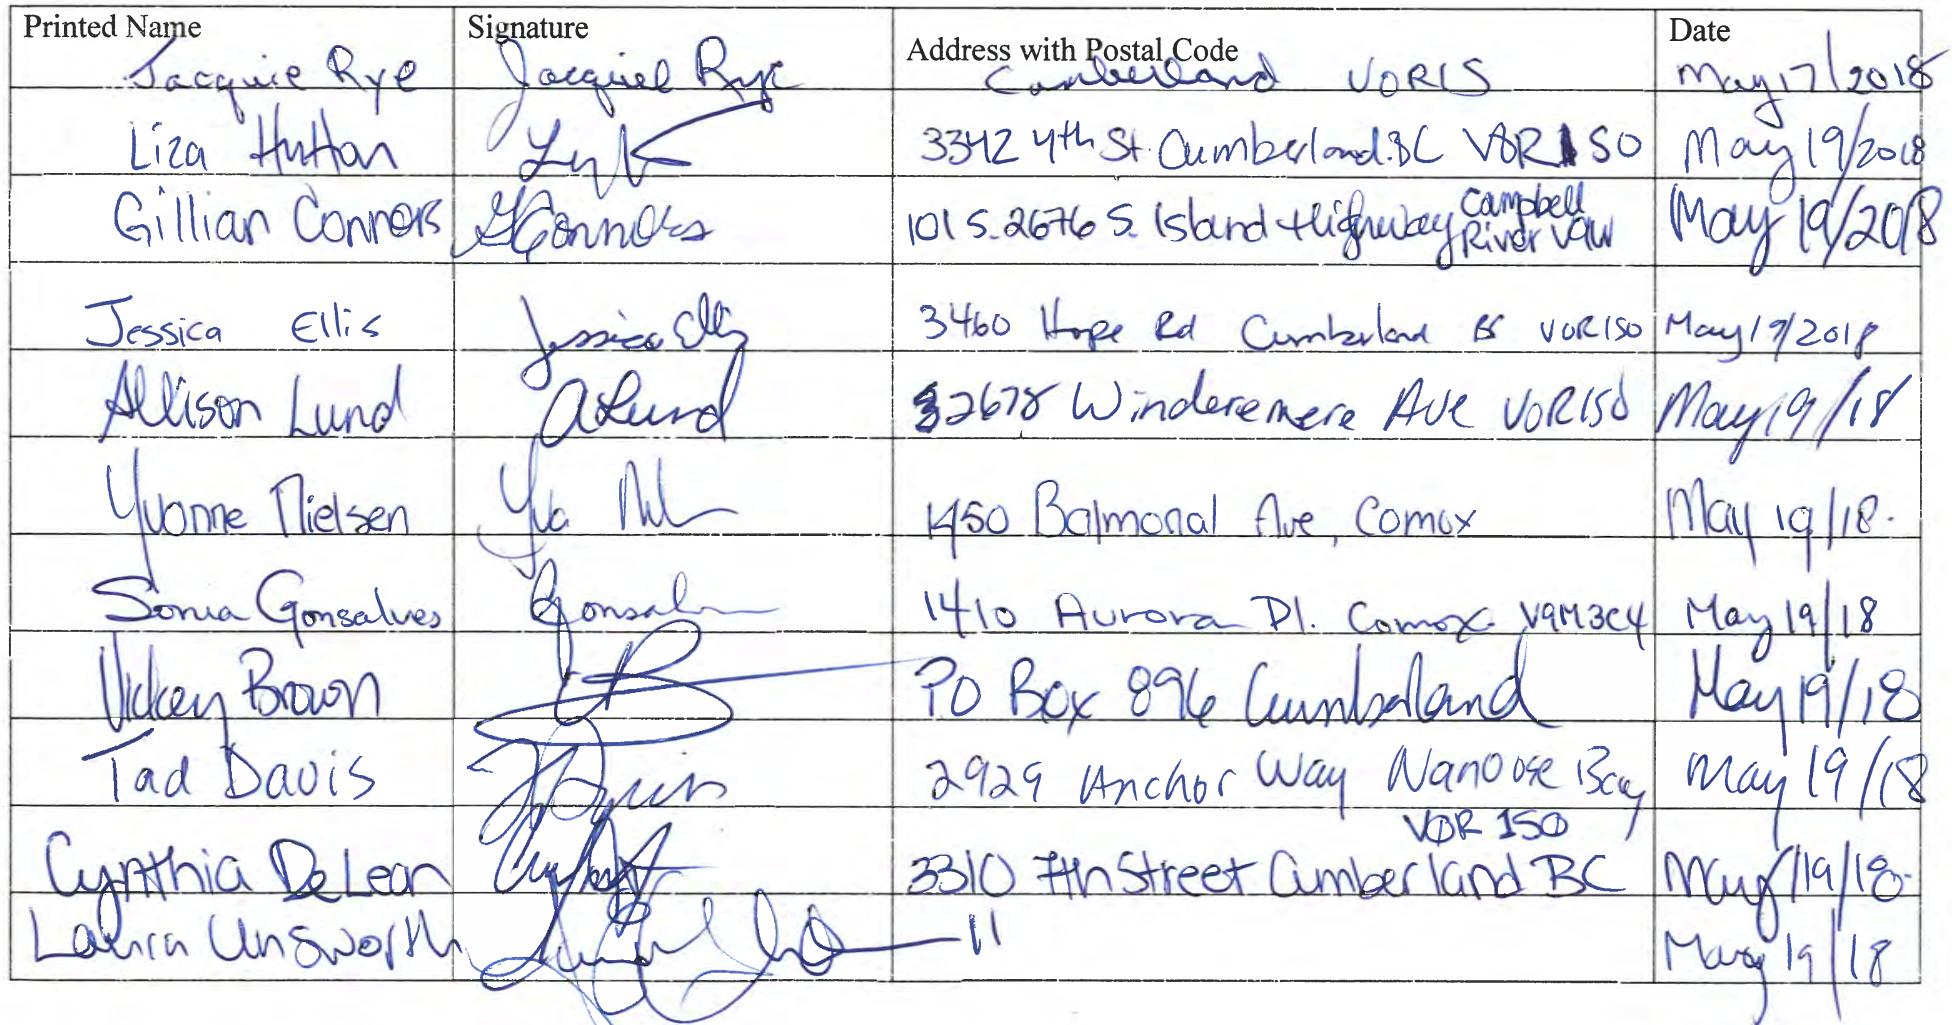 Printed Name Signature Address with Postal Code Date
Jacquie Rye Jacquie Rye Cumberland V0R1S May 17/2018
Liza Hutton 3342 4th St. Cumberland. BC V0R 1S0 May 19/2018
Gillian Connors GConnors 101 S. 2676 S. Island Highway Campbell River V9W May 19/2018
Jessica Ellis Jessica Ellis 3460 Hope Rd Cumberland BC V0R1S0 May 19/2018
Allison Lund ALund 2678 Winderemere Ave V0R1S0 May 19/18
Yvonne Nielsen 1450 Balmoral Ave, Comox May 19/18.
Sonia Gonsalves Gonsalves 1410 Aurora Pl. Comox V9M3C4 May 19/18
Vickey Brown PO Box 896 Cumberland May 19/18
Tad Davis TDavis 2929 Anchor Way Nanoose Bay May 19/18
Cynthia DeLean 3310 7th Street Cumberland BC V0R 1S0 May/19/18
Laura Unsworth 11 May 19/18